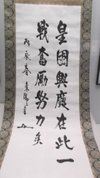 皇國興廢在此一
戰奮勵努力矣